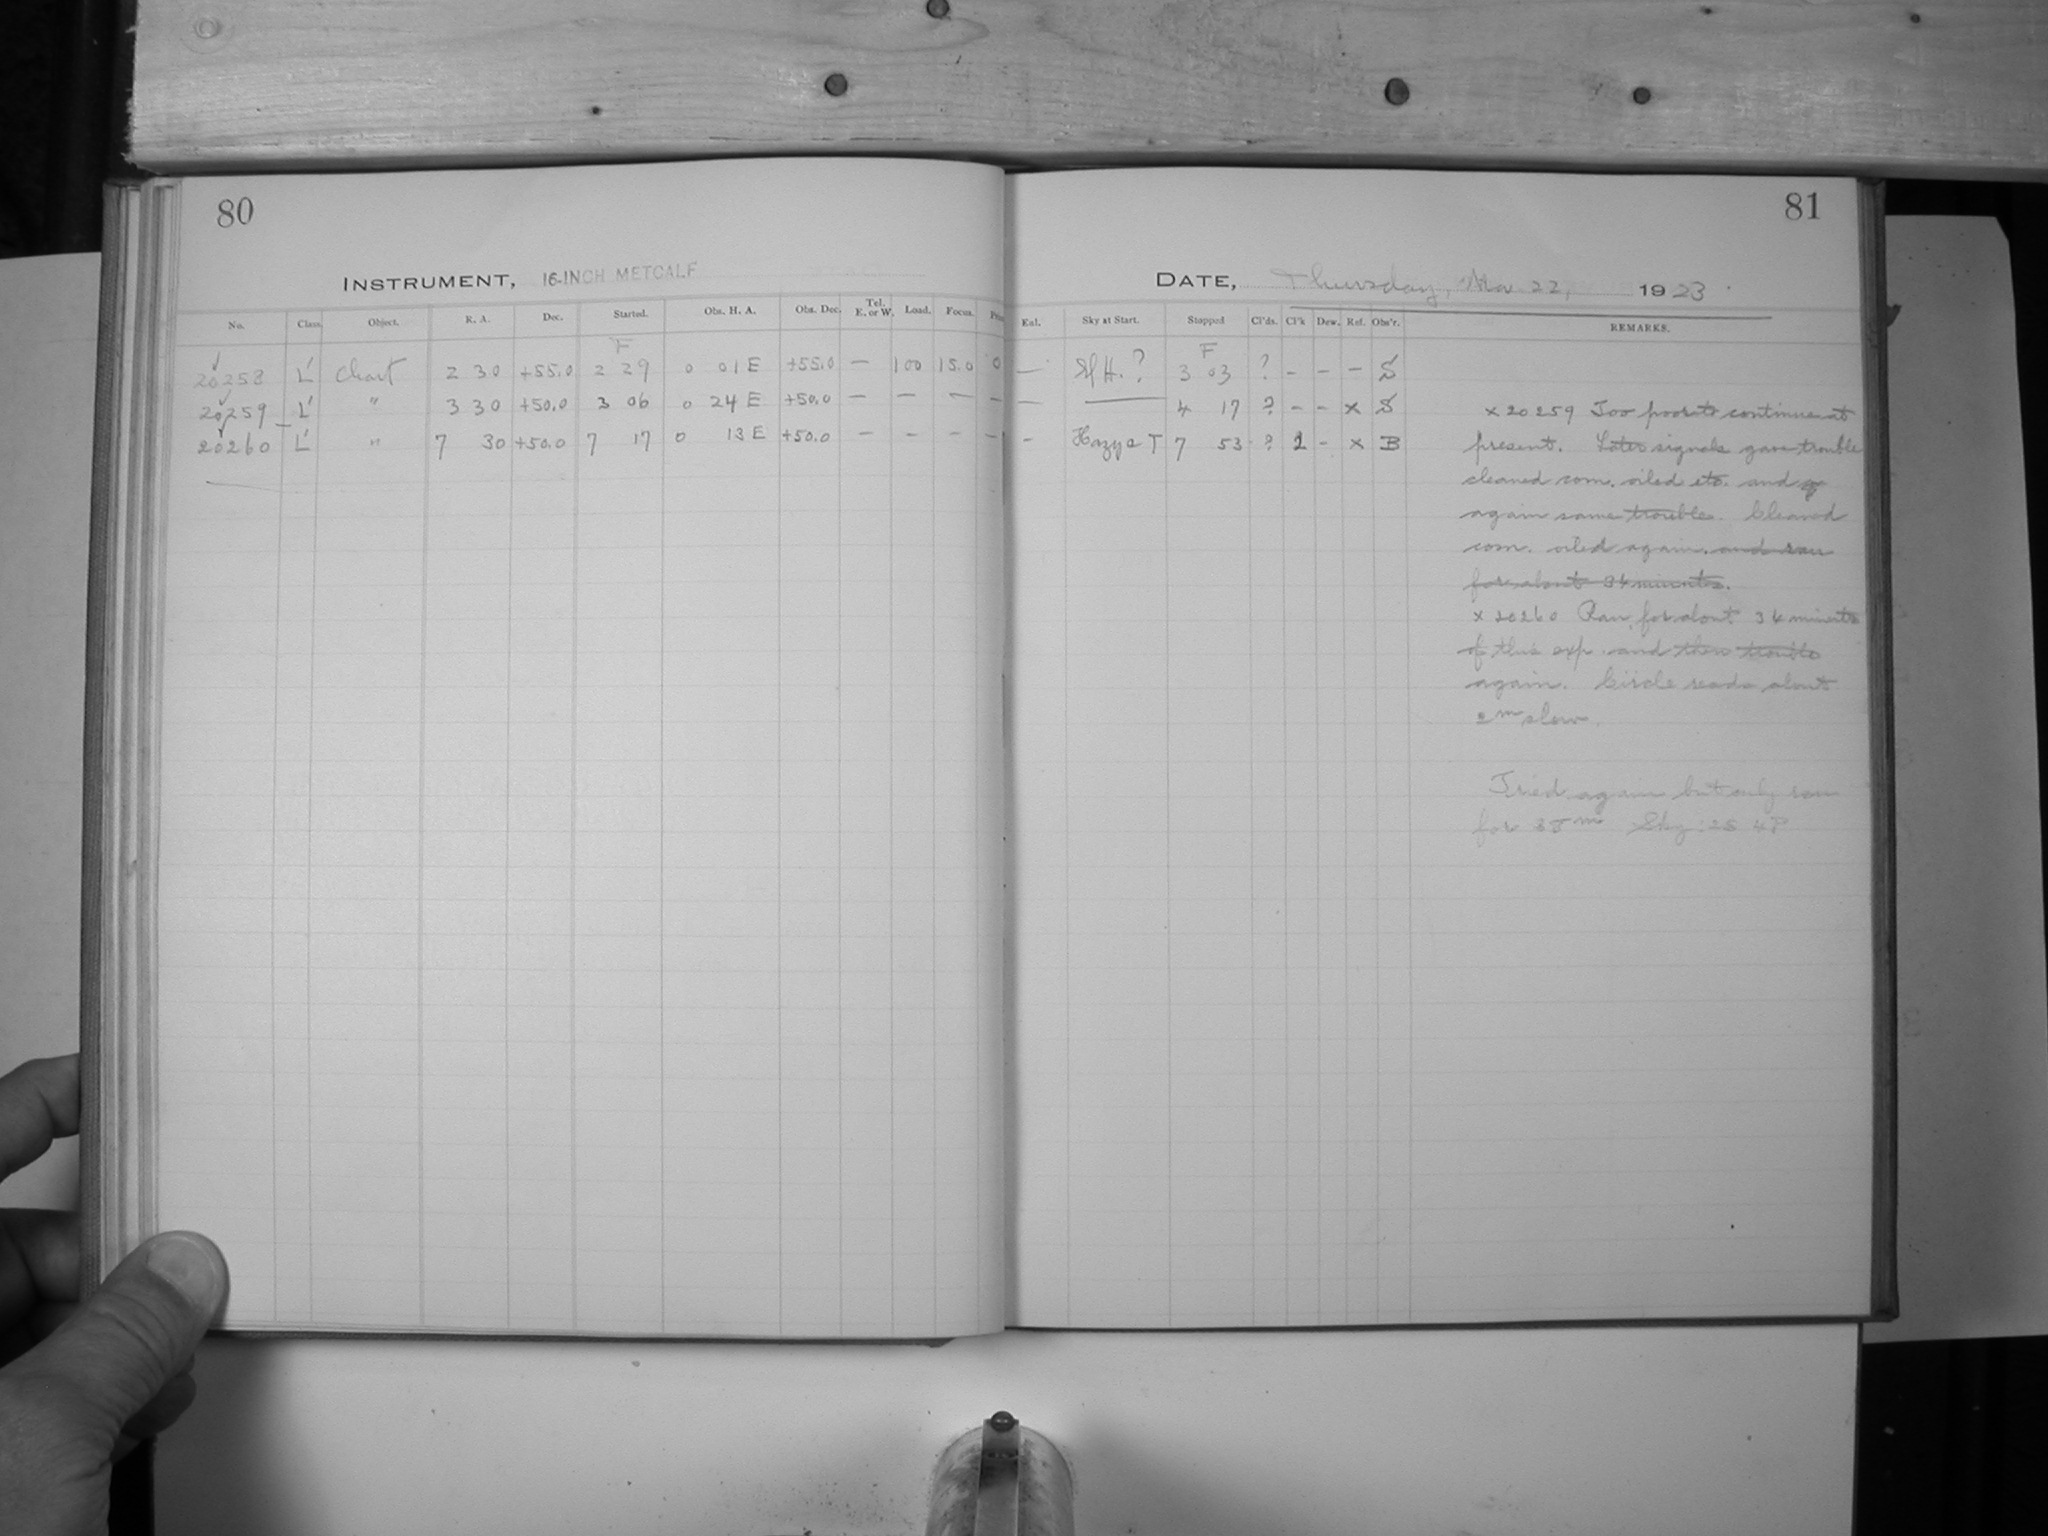 80
81
INSTRUMENT, 16-INCH METCALF
DATE, Thursday, Mar 22, 1923
No. Class. Object. R. A. Dec. Started. Obs. H. A. Obs. Dec. Tel. E. or W. Load. Focus.
Sky at Start. Stopped Cl'ds. Cl'k Dew. Ref. Obs'r. REMARKS.
F F
20258 L' Chart 2 30 +55.0 2 29 0 01 E +55.0 — 100 15.0 0 — H. ? 3 03 ? - - - S
20259 L' " 3 30 +50.0 3 06 0 24 E +50.0 — — — — — —— 4 17 ? - - x S
20260 L' " 7 30 +50.0 7 17 0 13 E +50.0 - - - - - Hazy 2 T 7 53 ? 1 - x B
x 20259 Too poor to continue at
present. Later signals gave trouble
cleaned com. oiled etc. and
again same trouble. Cleaned
com. oiled again. and ran
for about 34 minutes.
x 20260 Ran for about 34 minutes
of this exp. and then trouble
again. Circle reads about
2m slow.
Tried again but only ran
for 35m Sky: 2S 4P